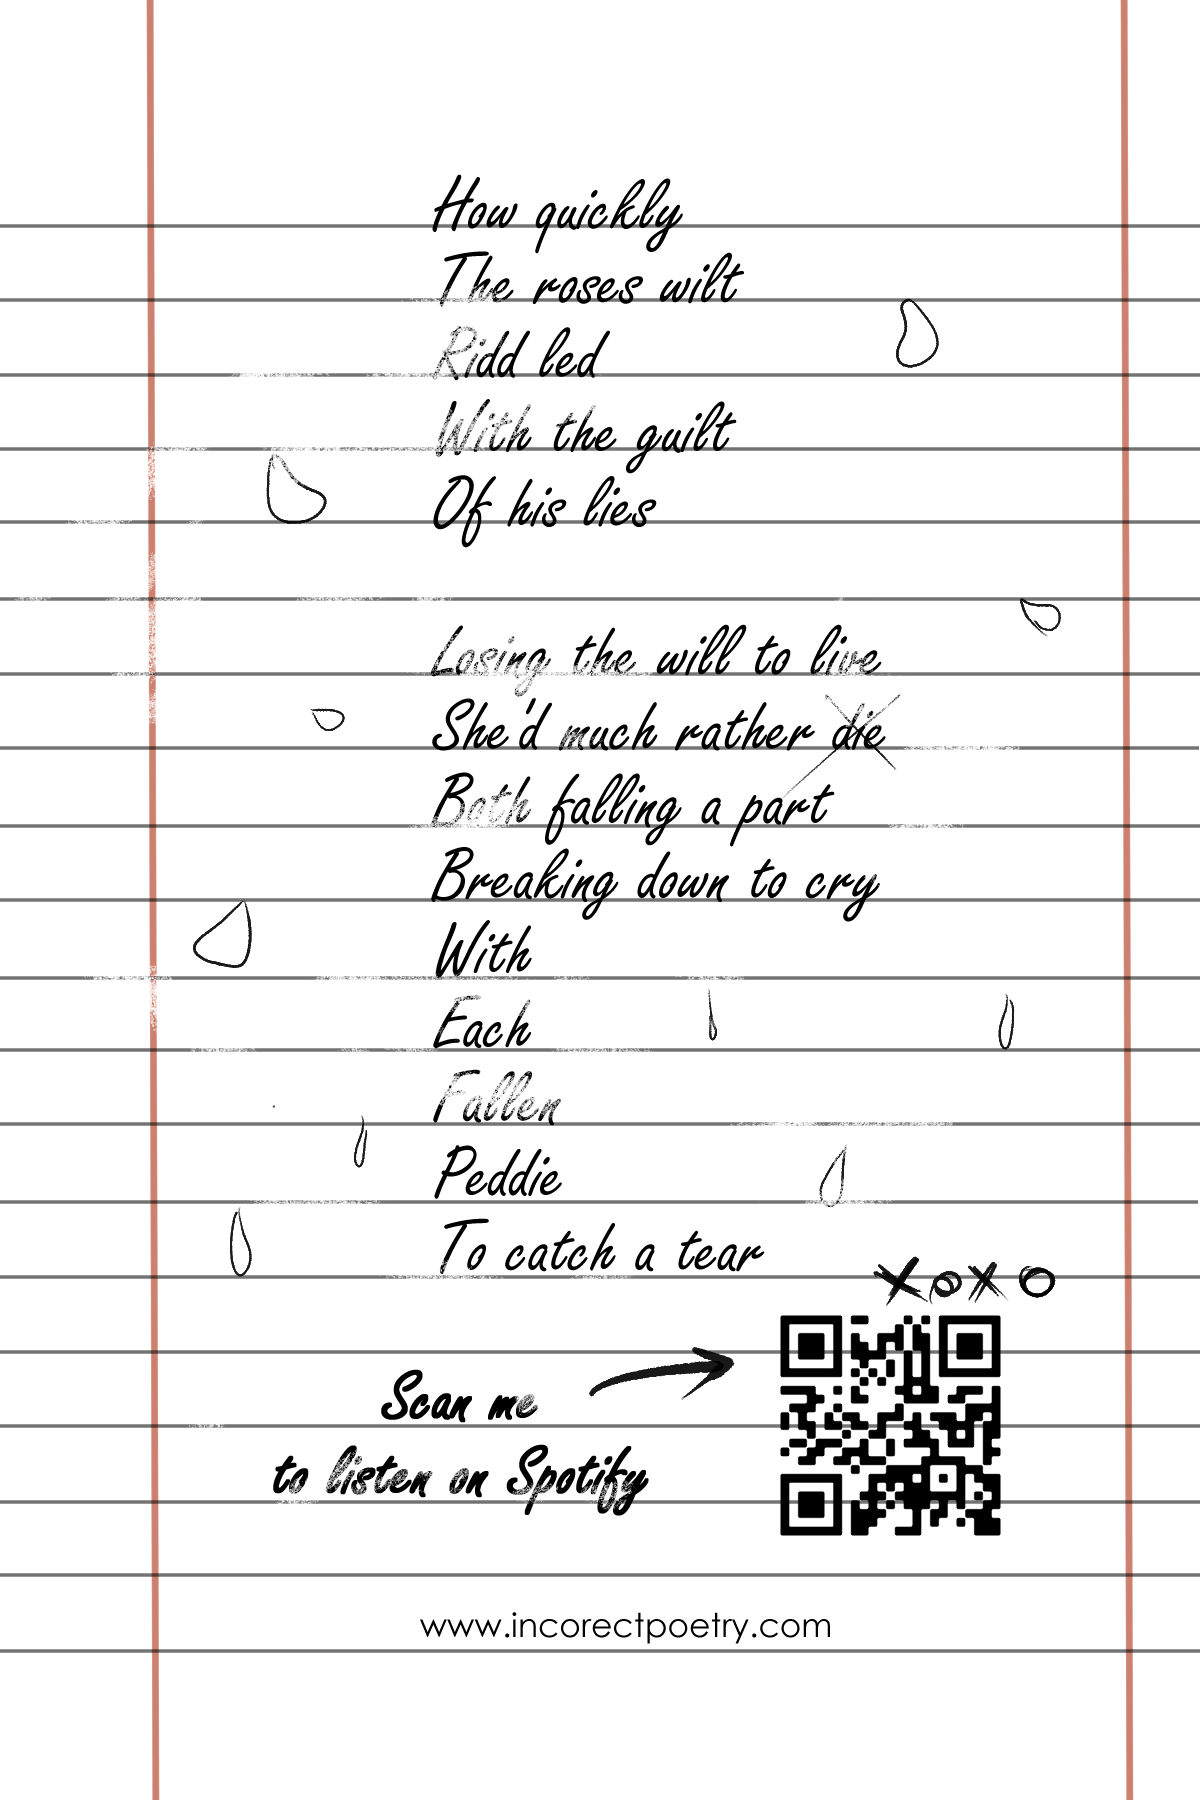 How quickly
The roses wilt
Ridd led
With the guilt
Of his lies
Losing the will to live
She'd much rather die
Both falling a part
Breaking down to cry
With
Each
Fallen
Peddie
To catch a tear
XOXO
Scan me
to listen on Spotify
www.incorectpoetry.com